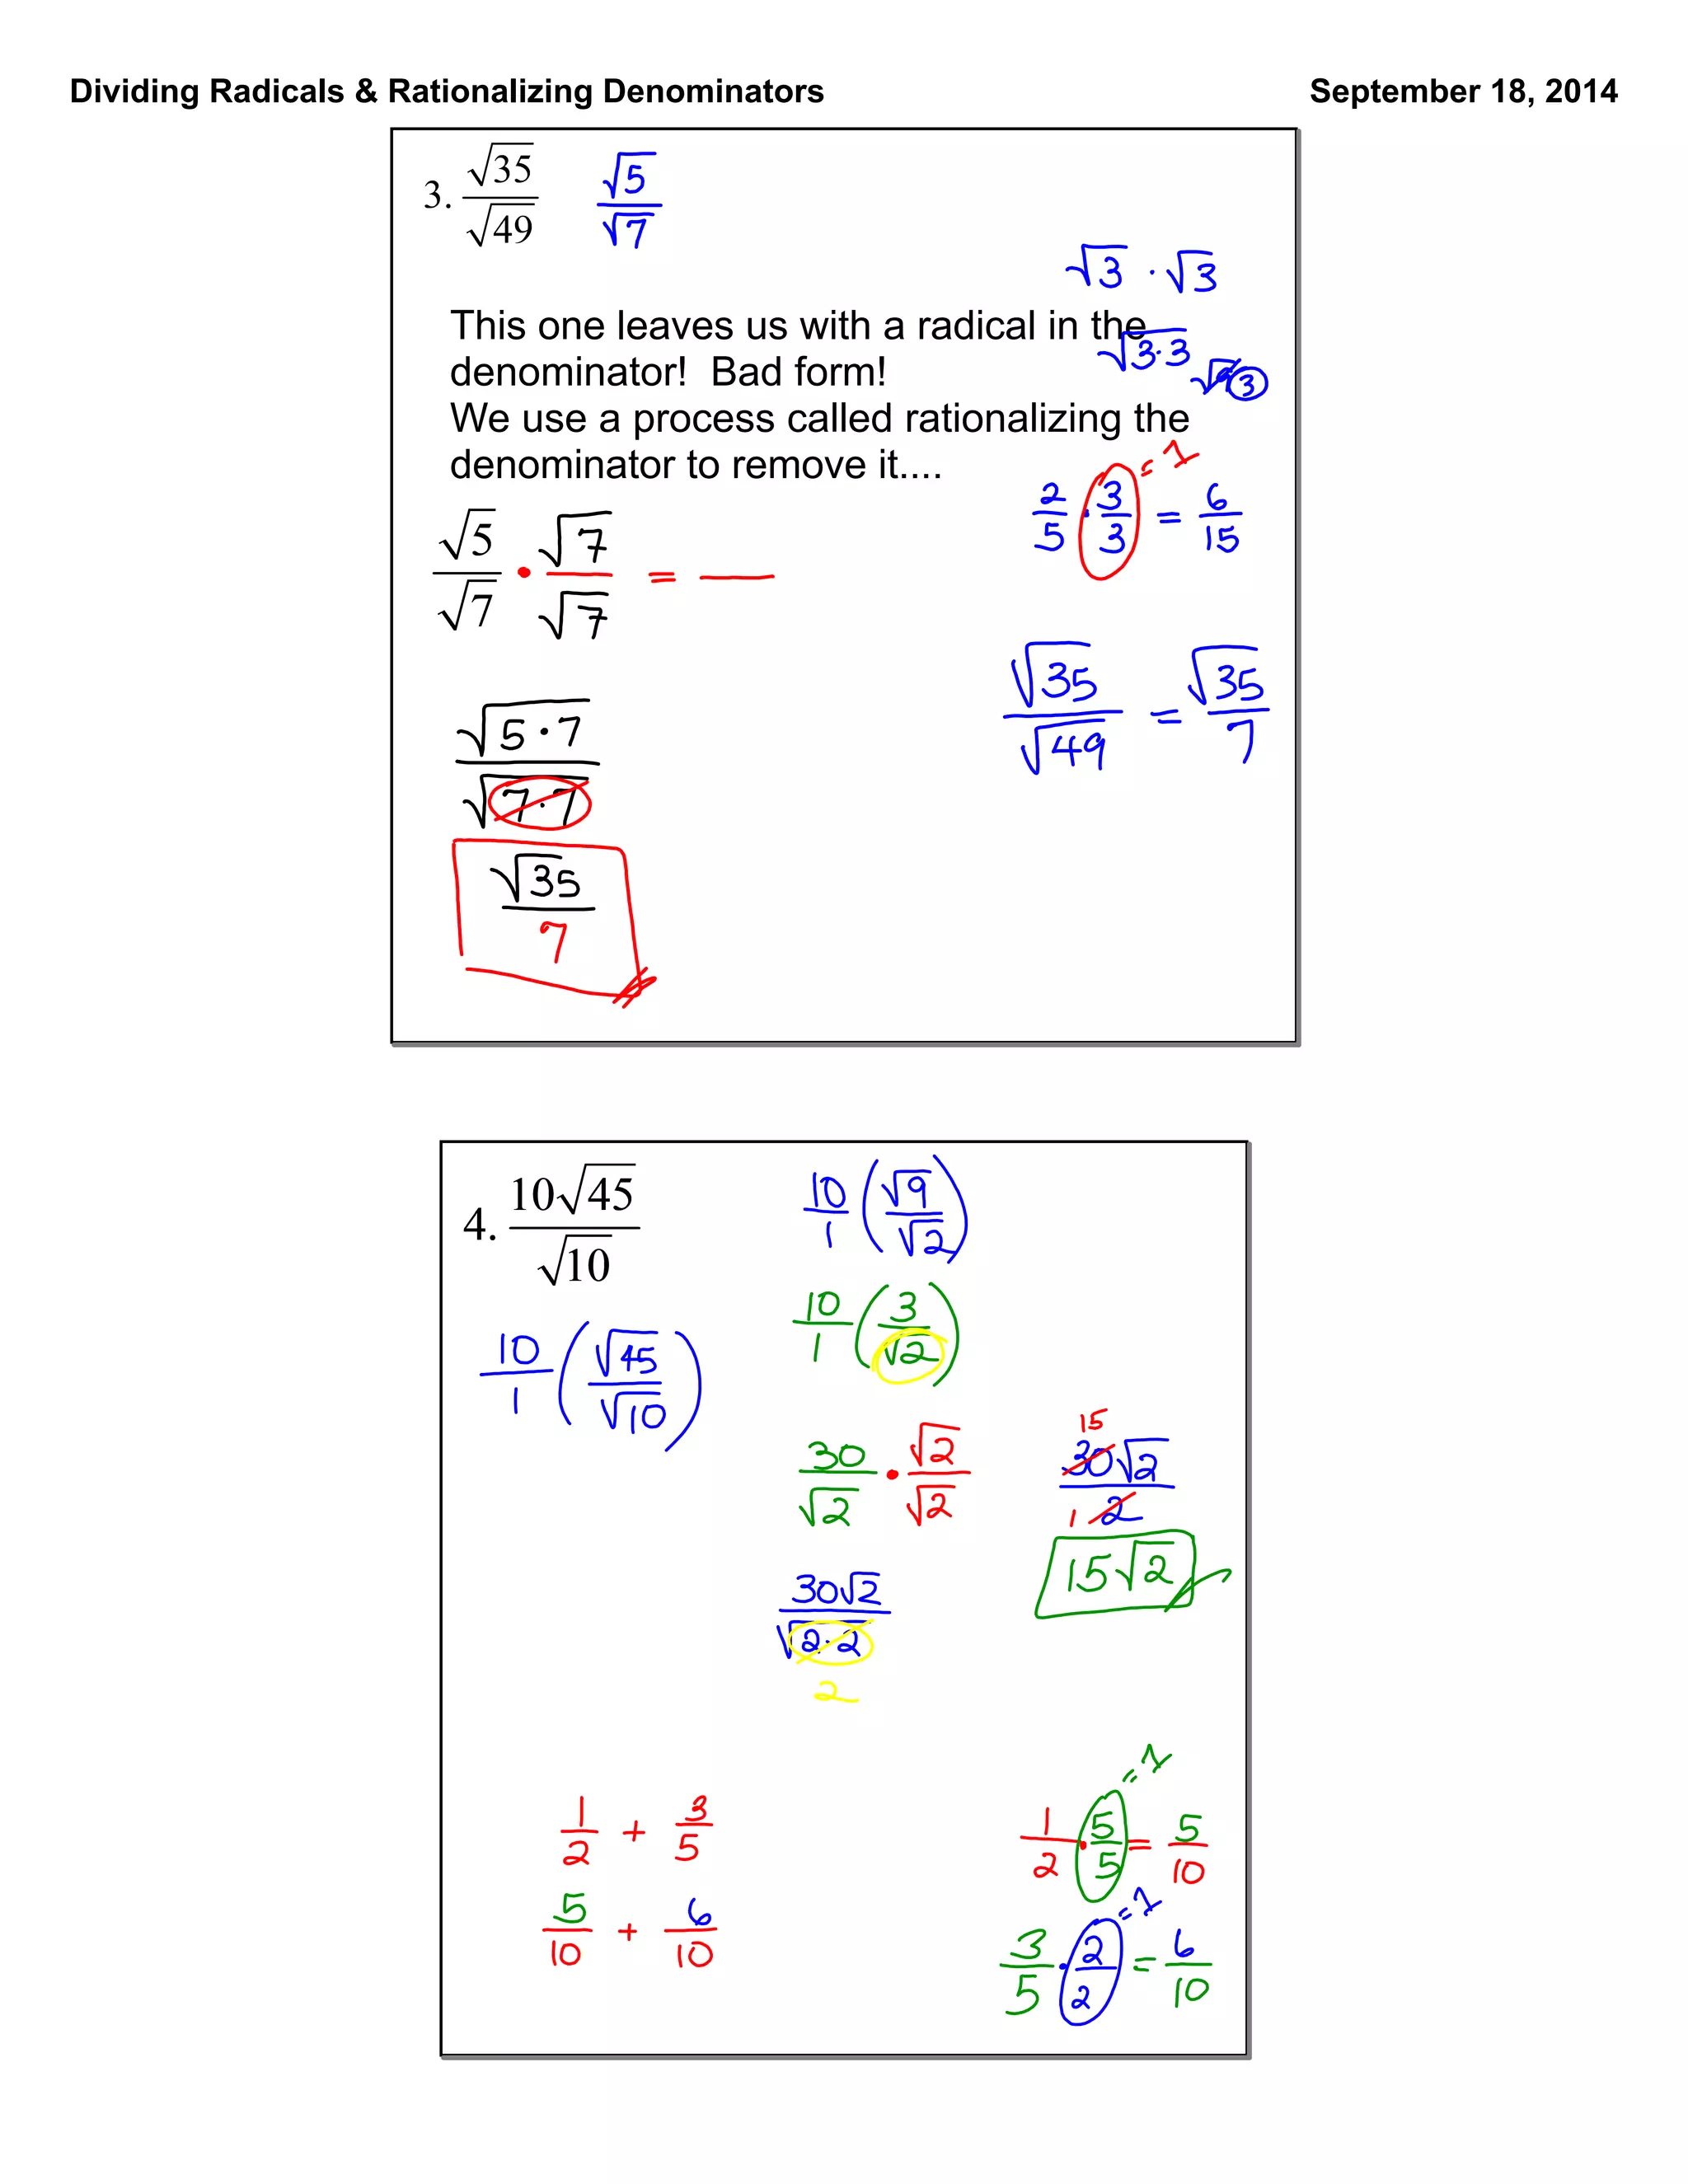 Dividing Radicals & Rationalizing Denominators September 18, 2014
3. √35/√49 √5/√7
√3 · √3
This one leaves us with a radical in the
√3·3
denominator! Bad form!
√9 3
We use a process called rationalizing the
denominator to remove it....
2/5 · 3/3 = 6/15
= 1
√5/√7 · √7/√7 = —
√35/√49 = √35/7
√5·7/√7·7
√35/7
4. 10√45/√10
10/1 (√9/√2)
10/1 (3/√2)
10/1 (√45/√10)
30/√2 · √2/√2
15
30√2/2
1
15√2
30√2/√2·2
2
= 1
1/2 + 3/5
1/2 · 5/5 = 5/10
= 1
5/10 + 6/10
3/5 · 2/2 = 6/10